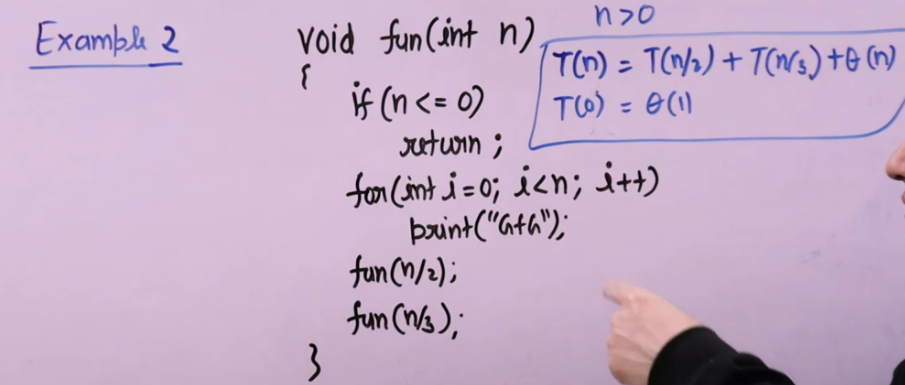 Example 2
void fun(int n)
{
if (n <= 0)
return ;
for(int i=0; i<n; i++)
print("GfG");
fun(n/2);
fun(n/3);
}
n>0
T(n) = T(n/2) + T(n/3) + θ(n)
T(0) = θ(1)